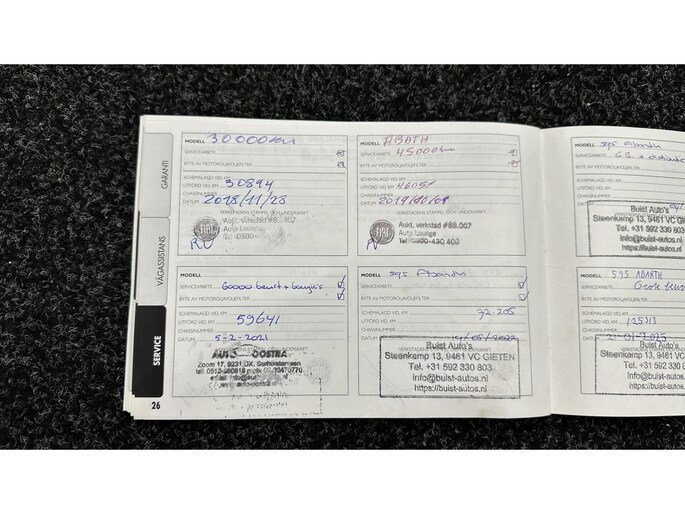 GARANTI
VÄGASSISTANS
SERVICE
26
MODELL 30000km
SERVICEARBETE
BYTE AV MOTOROLJA/OLJEFILTER
SCHEMALAGD VID, KM
UTFÖRD VID, KM 30894
CHASSINUMMER
DATUM 2018/11/28
VERKSTADENS STÄMPEL OCH UNDERSKRIFT
FIAT
MODELL ABATH
SERVICEARBETE 45000km
BYTE AV MOTOROLJA/OLJEFILTER
SCHEMALAGD VID, KM
UTFÖRD VID, KM 46051
CHASSINUMMER
DATUM 2019/10/09
VERKSTADENS STÄMPEL OCH UNDERSKRIFT
FIAT
Aukt. verkstad #88.007
Auto Lounge
Tel: 0300-430 400
595 Abarth
Buist Auto's
Steenkamp 13, 9461 VC GIETEN
Tel. +31 592 330 803
info@buist-autos.nl
https://buist-autos.nl
MODELL
SERVICEARBETE 60000 beurt +
BYTE AV MOTOROLJA/OLJEFILTER
SCHEMALAGD VID, KM
UTFÖRD VID, KM 59641
CHASSINUMMER
DATUM 5-2-2021
AUTO OOSTRA
MODELL 595 Abarth
SERVICEARBETE
BYTE AV MOTOROLJA/OLJEFILTER
SCHEMALAGD VID, KM
UTFÖRD VID, KM 72-205
CHASSINUMMER
DATUM 19/05/2022
Buist Auto's
Steenkamp 13, 9461 VC GIETEN
Tel. +31 592 330 803
info@buist-autos.nl
https://buist-autos.nl
MODELL 595 ABARTH
SERVICEARBETE Grote
BYTE AV MOTOROLJA/OLJEFILTER
SCHEMALAGD VID, KM
UTFÖRD VID, KM 125313
CHASSINUMMER
DATUM 21-01-2025
Buist Auto's
Steenkamp 13, 9461 VC
Tel. +31 592 330 8
info@buist-autos.nl
https://buist-autos.nl